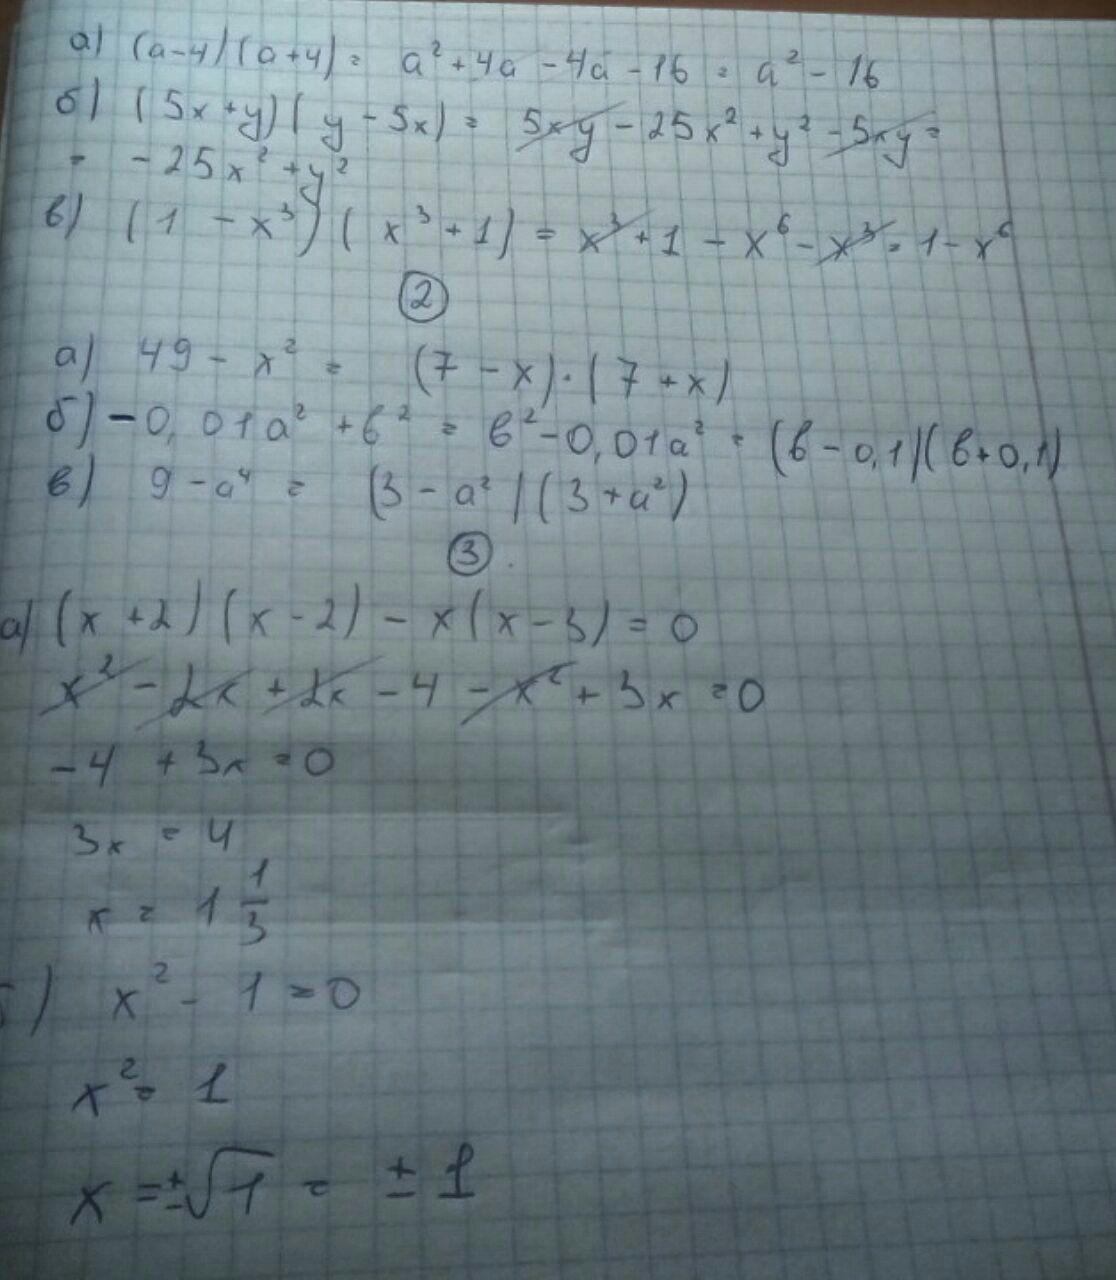 а) (a-4)(a+4) = a² + 4a - 4a - 16 = a² - 16
б) (5x+y)(y-5x) = 5xy - 25x² + y² - 5xy =
= -25x² + y²
в) (1 - x³)(x³+1) = x³ + 1 - x⁶ - x³ = 1 - x⁶
2
а) 49 - x² = (7 - x)·(7 + x)
б) -0,01a² + b² = b² - 0,01a² = (b - 0,1)(b+0,1)
в) 9 - a⁴ = (3 - a²)(3 + a²)
3.
а) (x+2)(x-2) - x(x-3) = 0
x² - 2x + 2x - 4 - x² + 3x = 0
-4 + 3x = 0
3x = 4
x = 1 1/3
б) x² - 1 = 0
x² = 1
x = ±√1 = ±1